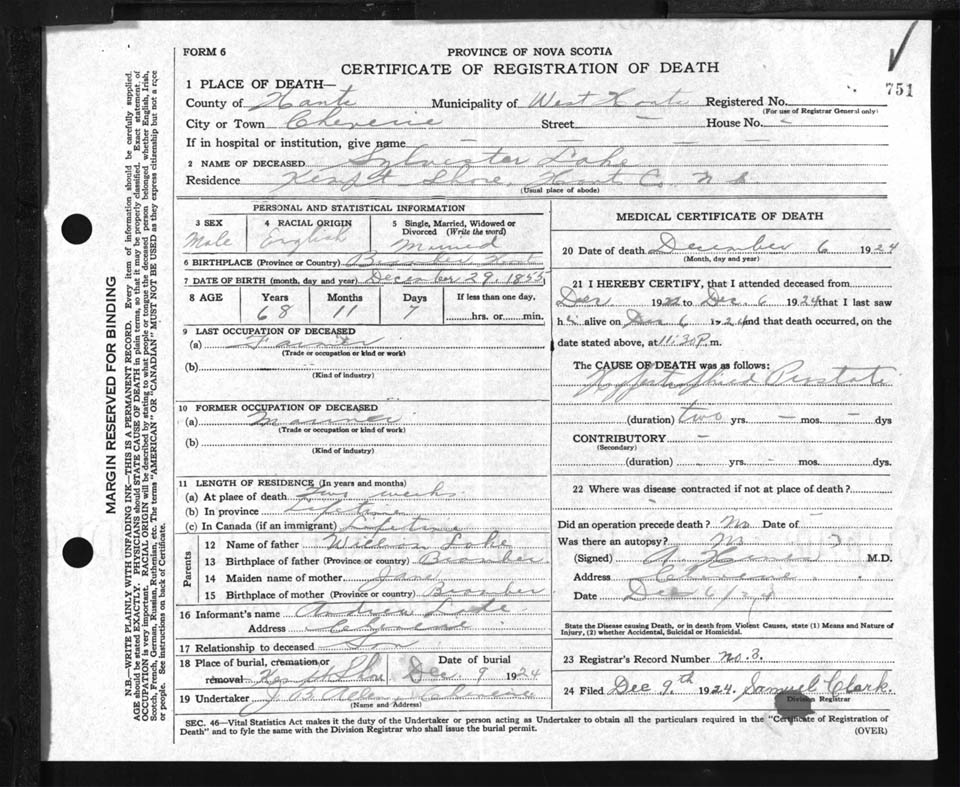 751
FORM 6
PROVINCE OF NOVA SCOTIA
CERTIFICATE OF REGISTRATION OF DEATH
MARGIN RESERVED FOR BINDING
N.B.—WRITE PLAINLY WITH UNFADING INK—THIS IS A PERMANENT RECORD. Every item of information should be carefully supplied.
AGE should be stated EXACTLY. PHYSICIANS should STATE CAUSE OF DEATH in plain terms, so that it may be properly classified. Exact statement of
OCCUPATION is very important. RACIAL ORIGIN will be described by stating to what people or tongue the deceased person belonged whether English, Irish,
Scotch, French, German, Russian, Ruthenian, etc. The terms "AMERICAN" OR "CANADIAN" MUST NOT BE USED as they express citizenship but not a race
or people. See instructions on back of Certificate.
1 PLACE OF DEATH—
County of Hants Municipality of West Hants Registered No.
(For use of Registrar General only)
City or Town Cheverie Street - House No. -
If in hospital or institution, give name — — — —
2 NAME OF DECEASED Sylvester Lake
Residence Kempt Shore, Hants Co. N.S.
(Usual place of abode)
PERSONAL AND STATISTICAL INFORMATION
3 SEX 4 RACIAL ORIGIN 5 Single, Married, Widowed or
Divorced (Write the word)
Male English Married
6 BIRTHPLACE (Province or Country)
7 DATE OF BIRTH (month, day and year) December 29, 1855
8 AGE Years Months Days If less than one day,
68 11 7 hrs. or min.
9 LAST OCCUPATION OF DECEASED
(a) Farmer
(Trade or occupation or kind or work)
(b)
(Kind of industry)
10 FORMER OCCUPATION OF DECEASED
(a) Mariner
(Trade or occupation or kind or work)
(b)
(Kind of industry)
11 LENGTH OF RESIDENCE (In years and months)
(a) At place of death Two weeks
(b) In province Lifetime
(c) In Canada (if an immigrant) Lifetime
Parents
12 Name of father William Lake
13 Birthplace of father (Province or country)
14 Maiden name of mother Jane
15 Birthplace of mother (Province or country)
16 Informant's name Andrew Lake
Address Cheverie
17 Relationship to deceased Son
18 Place of burial, cremation or Date of burial
removal Kempt Shore Dec 9 1924
19 Undertaker J B Allen, Cheverie
(Name and Address)
MEDICAL CERTIFICATE OF DEATH
20 Date of death December 6 1924
(Month, day and year)
21 I HEREBY CERTIFY, that I attended deceased from
Dec 1922 to Dec 6 1924 that I last saw
him alive on Dec 6 1924 and that death occurred, on the
date stated above, at 11:30 P.m.
The CAUSE OF DEATH was as follows:
Hypertrophied Prostate
(duration) two yrs. — mos. — dys.
CONTRIBUTORY -
(Secondary)
(duration) yrs. mos. dys.
22 Where was disease contracted if not at place of death?
Did an operation precede death? No Date of -
Was there an autopsy? No
(Signed) M.D.
Address Cheverie
Date Dec 6/24
State the Disease causing Death, or in death from Violent Causes, state (1) Means and Nature of
Injury, (2) whether Accidental, Suicidal or Homicidal.
23 Registrar's Record Number No. 3.
24 Filed Dec 9th 1924. Samuel Clark.
Division Registrar
SEC. 46—Vital Statistics Act makes it the duty of the Undertaker or person acting as Undertaker to obtain all the particulars required in the "Certificate of Registration of
Death" and to fyle the same with the Division Registrar who shall issue the burial permit.
(OVER)